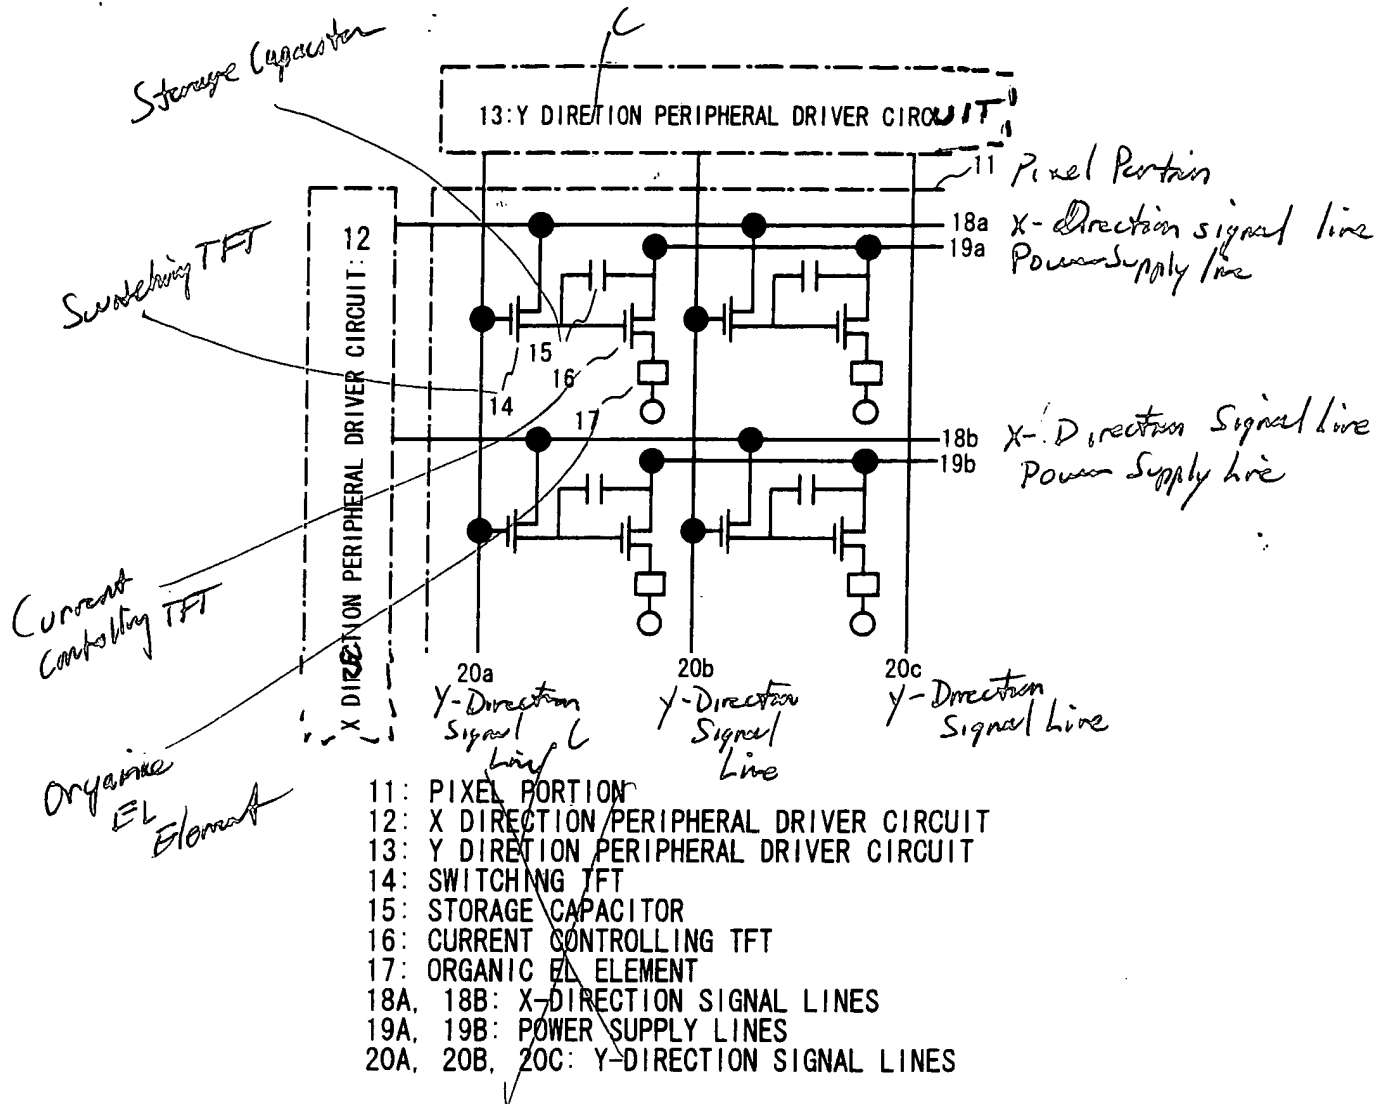 C
Storage Capacitor
13:Y DIRETION PERIPHERAL DRIVER CIRCUIT
11 Pixel Portion
18a X-direction signal line
19a Power Supply line
Switching TFT
X DIRECTION PERIPHERAL DRIVER CIRCUIT:12
15
16
14
17
18b X-Direction Signal Line
19b Power Supply Line
Current
Controlling TFT
20a
20b
20c
Y-Direction
Signal
Line
Y-Direction
Signal
Line
Y-Direction
Signal Line
C
Organic
EL
Element
11: PIXEL PORTION
12: X DIRECTION PERIPHERAL DRIVER CIRCUIT
13: Y DIRETION PERIPHERAL DRIVER CIRCUIT
14: SWITCHING TFT
15: STORAGE CAPACITOR
16: CURRENT CONTROLLING TFT
17: ORGANIC EL ELEMENT
18A, 18B: X-DIRECTION SIGNAL LINES
19A, 19B: POWER SUPPLY LINES
20A, 20B, 20C: Y-DIRECTION SIGNAL LINES